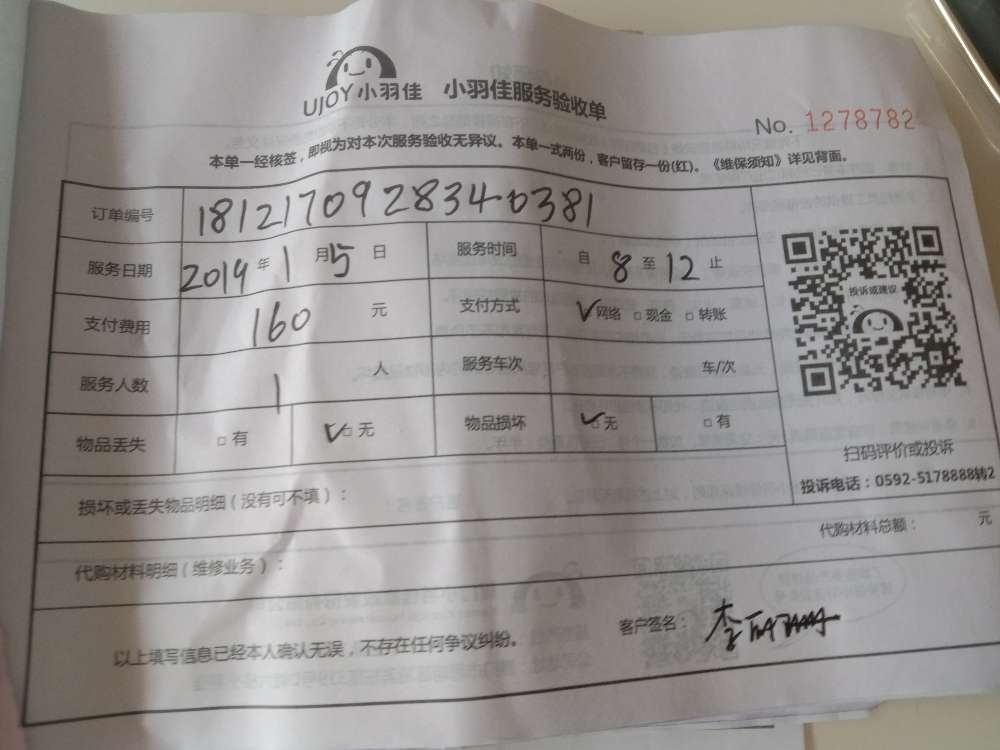 UJOY小羽佳 小羽佳服务验收单
No. 1278782
本单一经核签，即视为对本次服务验收无异议。本单一式两份，客户留存一份(红)。《维保须知》详见背面。
订单编号 181217092834-0381
服务日期 2019年1月5日 服务时间 自8至12止
支付费用 160元 支付方式 ✓网络 □现金 □转账
投诉或建议
服务人数 1人 服务车次 车/次
物品丢失 □有 ✓□无 物品损坏 ✓□无 □有
扫码评价或投诉
投诉电话：0592-5178888转2
损坏或丢失物品明细（没有可不填）：
代购材料总额： 元
代购材料明细（维修业务）：
以上填写信息已经本人确认无误，不存在任何争议纠纷。
客户签名：李